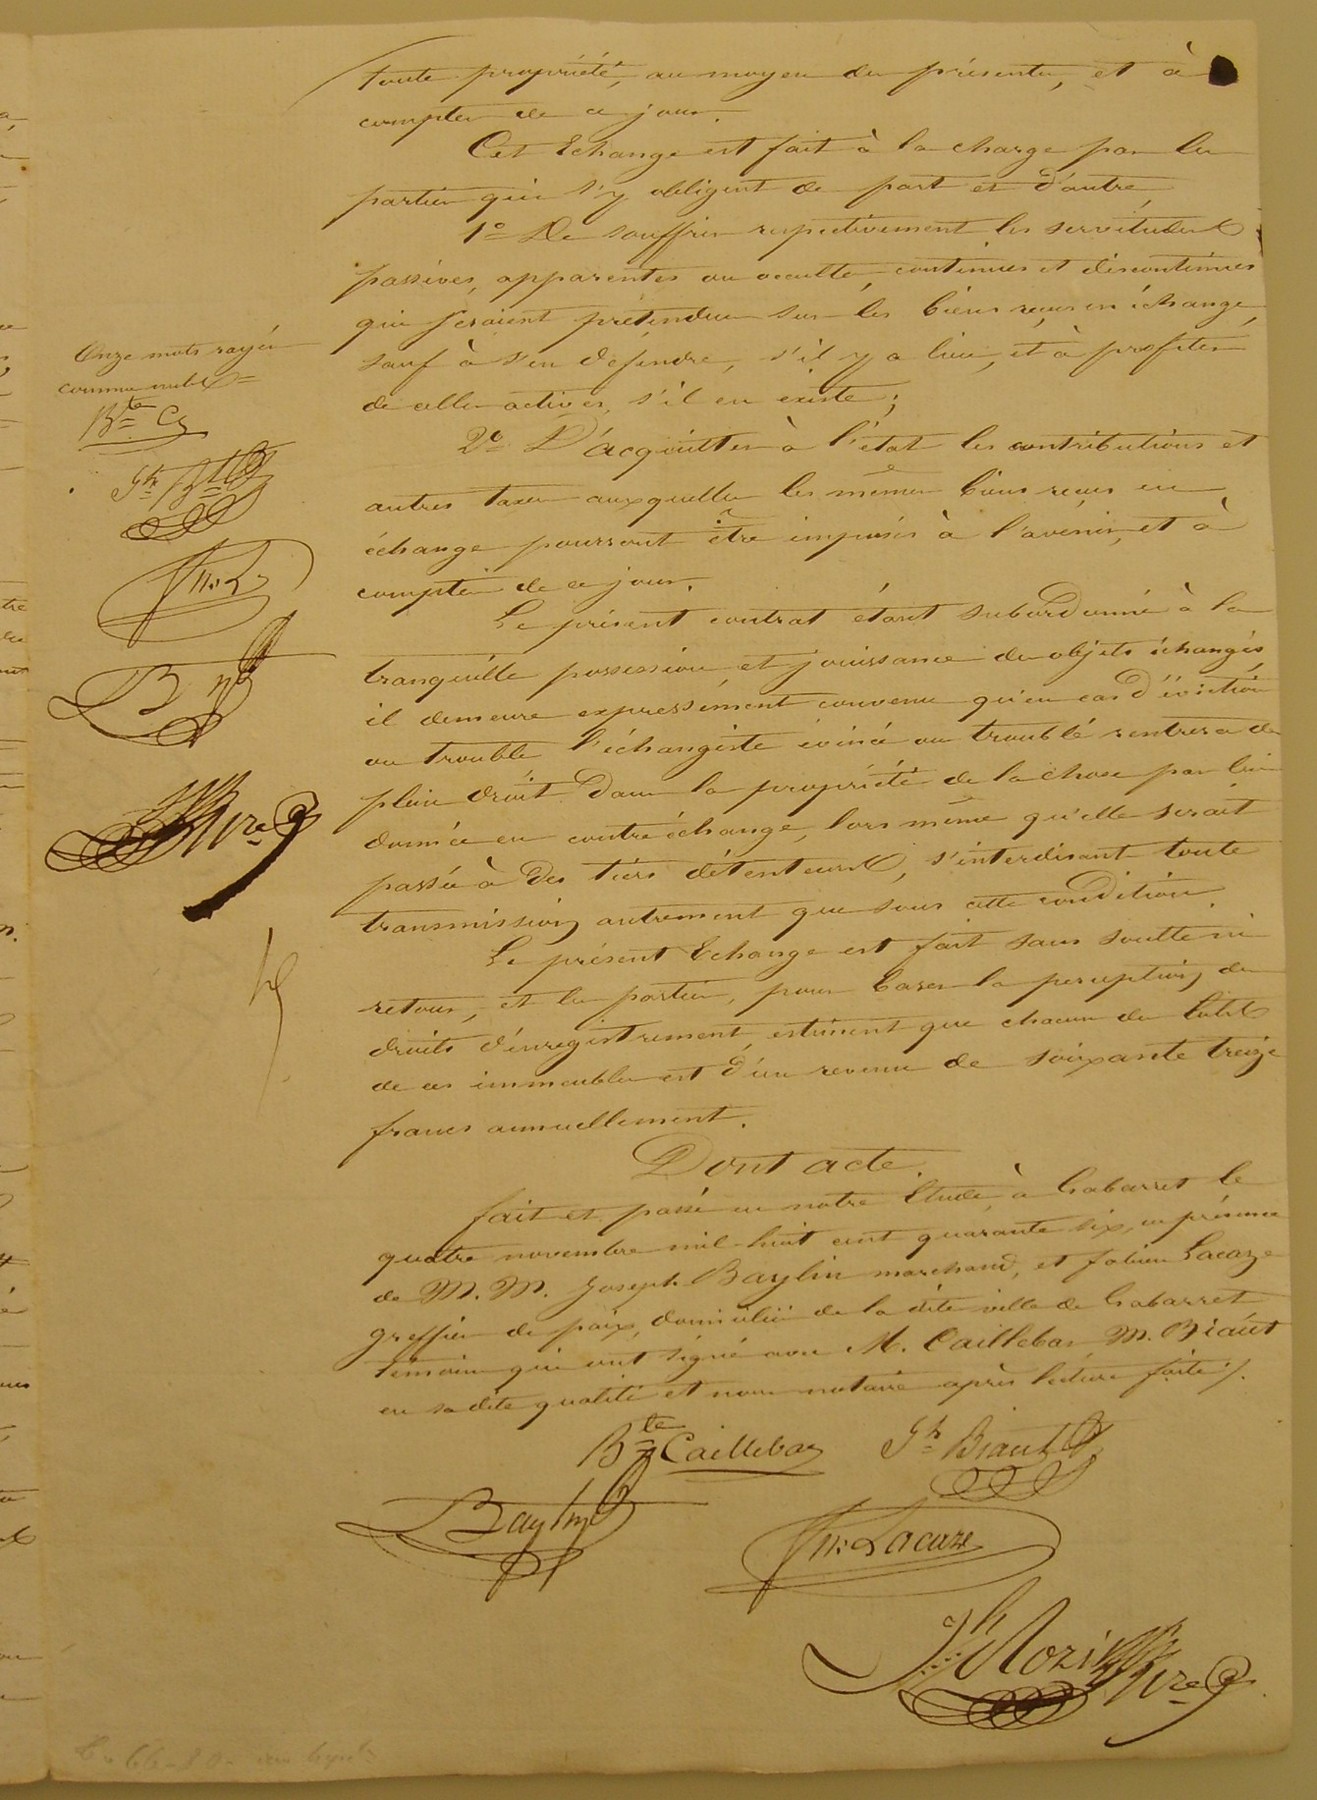 toute propriété, au moyen des présentes, et à
compter de ce jour.
Cet Echange est fait à la charge par les
parties qui s'y obligent de part et d'autre,
1° De souffrir respectivement les servitudes
passives, apparentes ou occultes, continues et discontinues
qui seraient prétendues sur les biens reçus en échange,
sauf à s'en défendre, s'il y a lieu, et à profiter
de celles actives, s'il en existe;
2° D'acquitter à l'état les contributions et
autres taxes auxquelles les mêmes biens reçus en
échange pourront être imposés à l'avenir, et à
compter de ce jour.
Le présent contrat étant subordonné à la
tranquille possession et jouissance des objets échangés,
il demeure expressément convenu qu'en cas d'éviction
ou trouble l'échangiste évincé ou troublé rentrera de
plein droit dans la propriété de la chose par lui
donnée en contre échange, lors même qu'elle serait
passée à des tiers détenteurs, s'interdisant toute
transmission autrement que sous cette condition.
Le présent Echange est fait sans soulte ni
retour, et les parties, pour baser la perception des
droits d'enregistrement, estiment que chacun des lots
de ces immeubles est d'un revenu de soixante treize
francs annuellement.
Dont acte.
fait et passé en notre Etude, à Gabarret le
quatre novembre mil-huit cent quarante six, en présence
de M. M. Joseph Baylin marchand, et fabien Lacaze
greffier de paix, domiciliés de la dite ville de Gabarret
témoins qui ont signé avec M. Caillebar M. Biaut
en sa dite qualité et nous notaire après lecture faite /.
Bte Caillebar Jh Biaut
Baylin
Lacaze
Onze mots rayés
comme nuls =
Bte C
Jh Bt
L
B